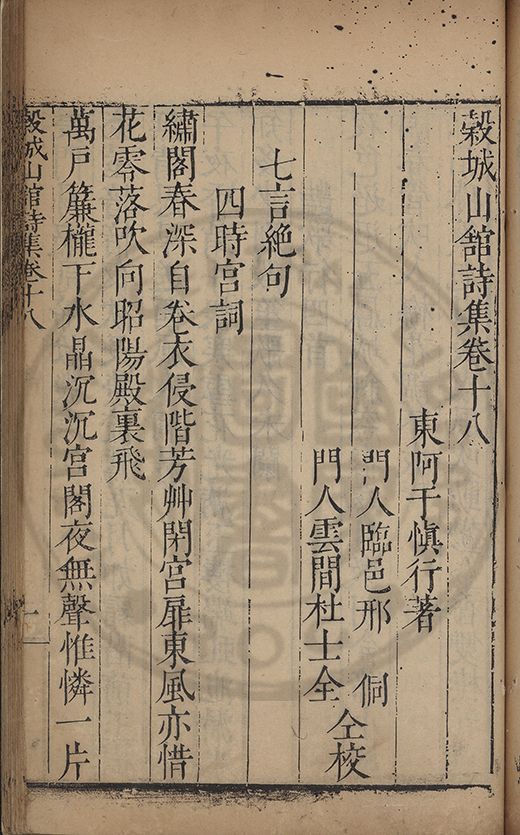 穀城山館詩集卷十八
東阿于慎行著
門人臨邑邢侗
門人雲間杜士全
仝校
七言絶句
四時宮詞
繡閣春深自卷衣侵階芳艸閉宮扉東風亦惜
花零落吹向昭陽殿裏飛
萬戸簾櫳下水晶沉沉宮閣夜無聲惟憐一片
穀城山館詩集卷十八
一